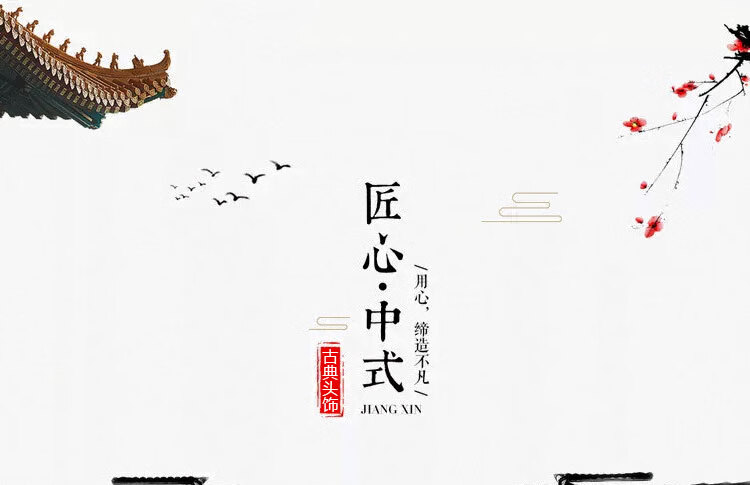 匠心·中式
用心，缔造不凡
古典头饰
JIANG XIN